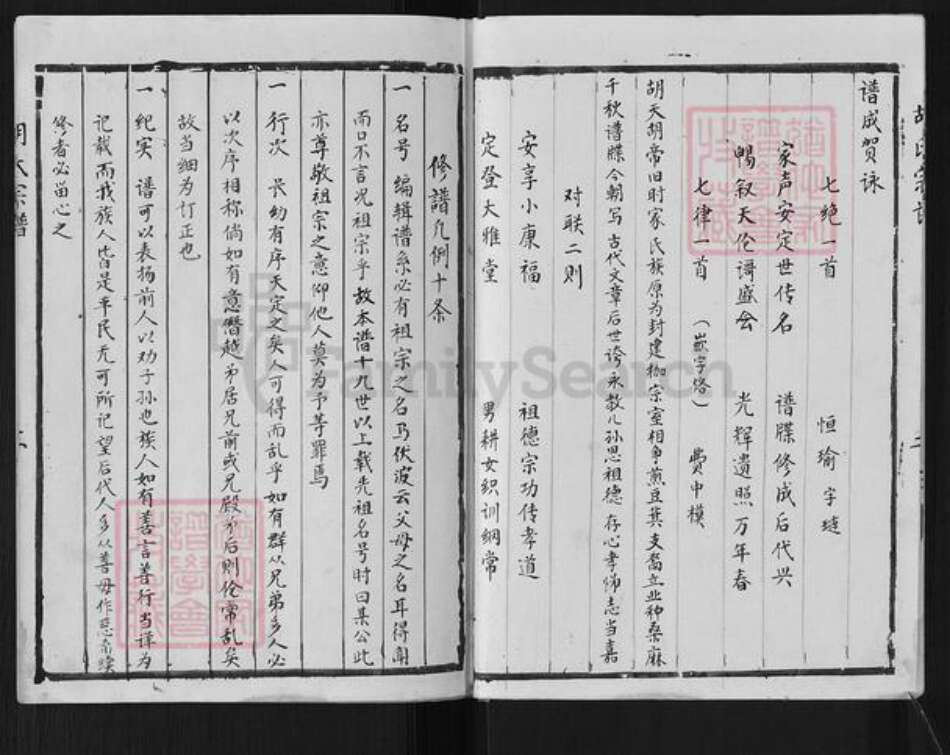 谱成贺咏
七绝一首 恒瑜字琏
家声安定世传名 谱牒修成后代兴
暢叙天伦谓盛会 光辉遗照万年春
七律一首 （嵌字格） 费中模
胡天胡帝旧时家 氏族原为封建枷 宗室相争煎豆萁 支裔立业种桑麻
千秋谱牒今朝写 古代文章后世誇 永教儿孙思祖德 存心孝悌志当嘉
对联二则
安享小康福 祖德宗功传孝道
定登大雅堂 男耕女织训纲常
修譜凡例十条
一 名号 编辑谱系必有祖宗之名乃伏波云父母之名耳得闻
而口不言况祖宗乎故本谱十九世以上载先祖名号时曰某公此
亦尊敬祖宗之意仰他人莫为予等罪焉
一 行次 长幼有序天定之矣人可得而乱乎如有群从兄弟多人必
以次序相称倘如有意僭越弟居兄前或兄殿弟后则伦常乱矣
故当细为订正也
一 纪实 谱可以表扬前人以劝子孙也族人如有善言善行当详为
记载而我族人皆是平民无可所记望后代人多从善毋作恶而续
修者必留心之
胡氏宗譜
二
FamilySearch